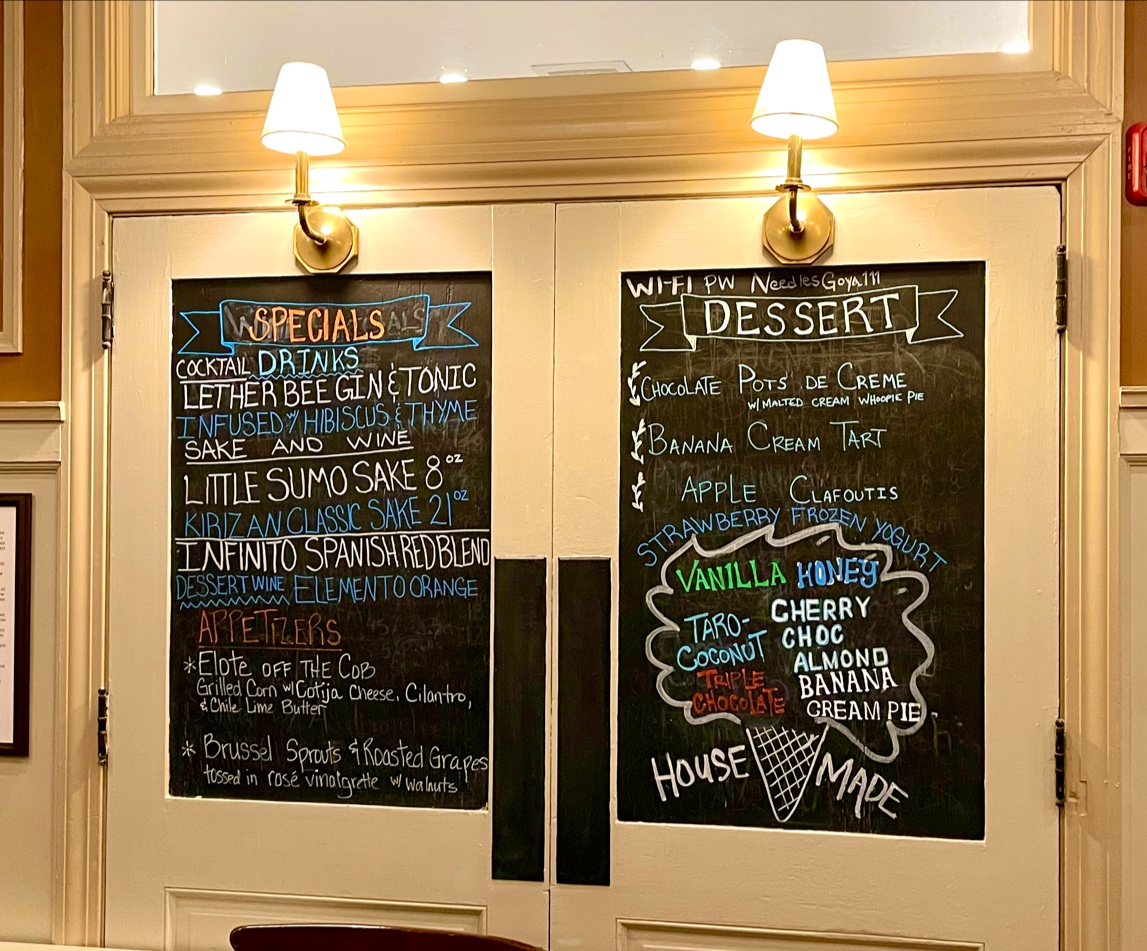 SPECIALS
COCKTAIL DRINKS
LETHER BEE GIN & TONIC
INFUSED W/ HIBISCUS & THYME
SAKE AND WINE
LITTLE SUMO SAKE 8 oz
KIRIZAN CLASSIC SAKE 21 oz
INFINITO SPANISH RED BLEND
DESSERT WINE ELEMENTO ORANGE
APPETIZERS
* Elote OFF THE COB
Grilled Corn w/ Cotija Cheese, Cilantro,
& Chile Lime Butter
* Brussel Sprouts & Roasted Grapes
tossed in rosé vinaigrette w/ walnuts
WI-FI PW NeedlesGoya111
DESSERT
CHOCOLATE POTS DE CREME
W/ MALTED CREAM WHOOPIE PIE
BANANA CREAM TART
APPLE CLAFOUTIS
STRAWBERRY FROZEN YOGURT
VANILLA HONEY
TARO-
COCONUT
TRIPLE
CHOCOLATE
CHERRY
CHOC
ALMOND
BANANA
CREAM PIE
HOUSE MADE